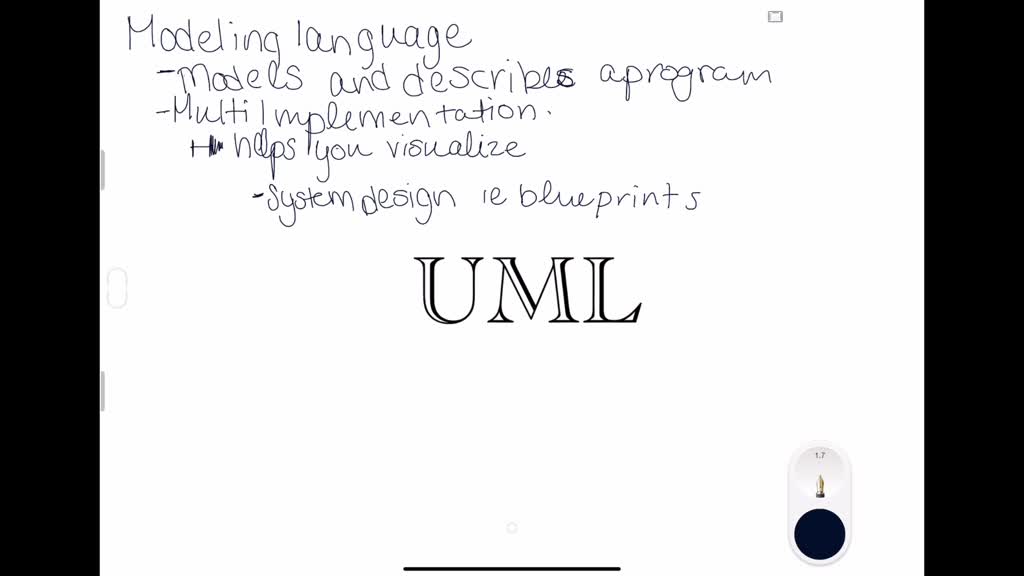 Modeling language
-Models and describes a program
-Multi Implementation.
helps you visualize
-System design ie blueprints
UML
1.7